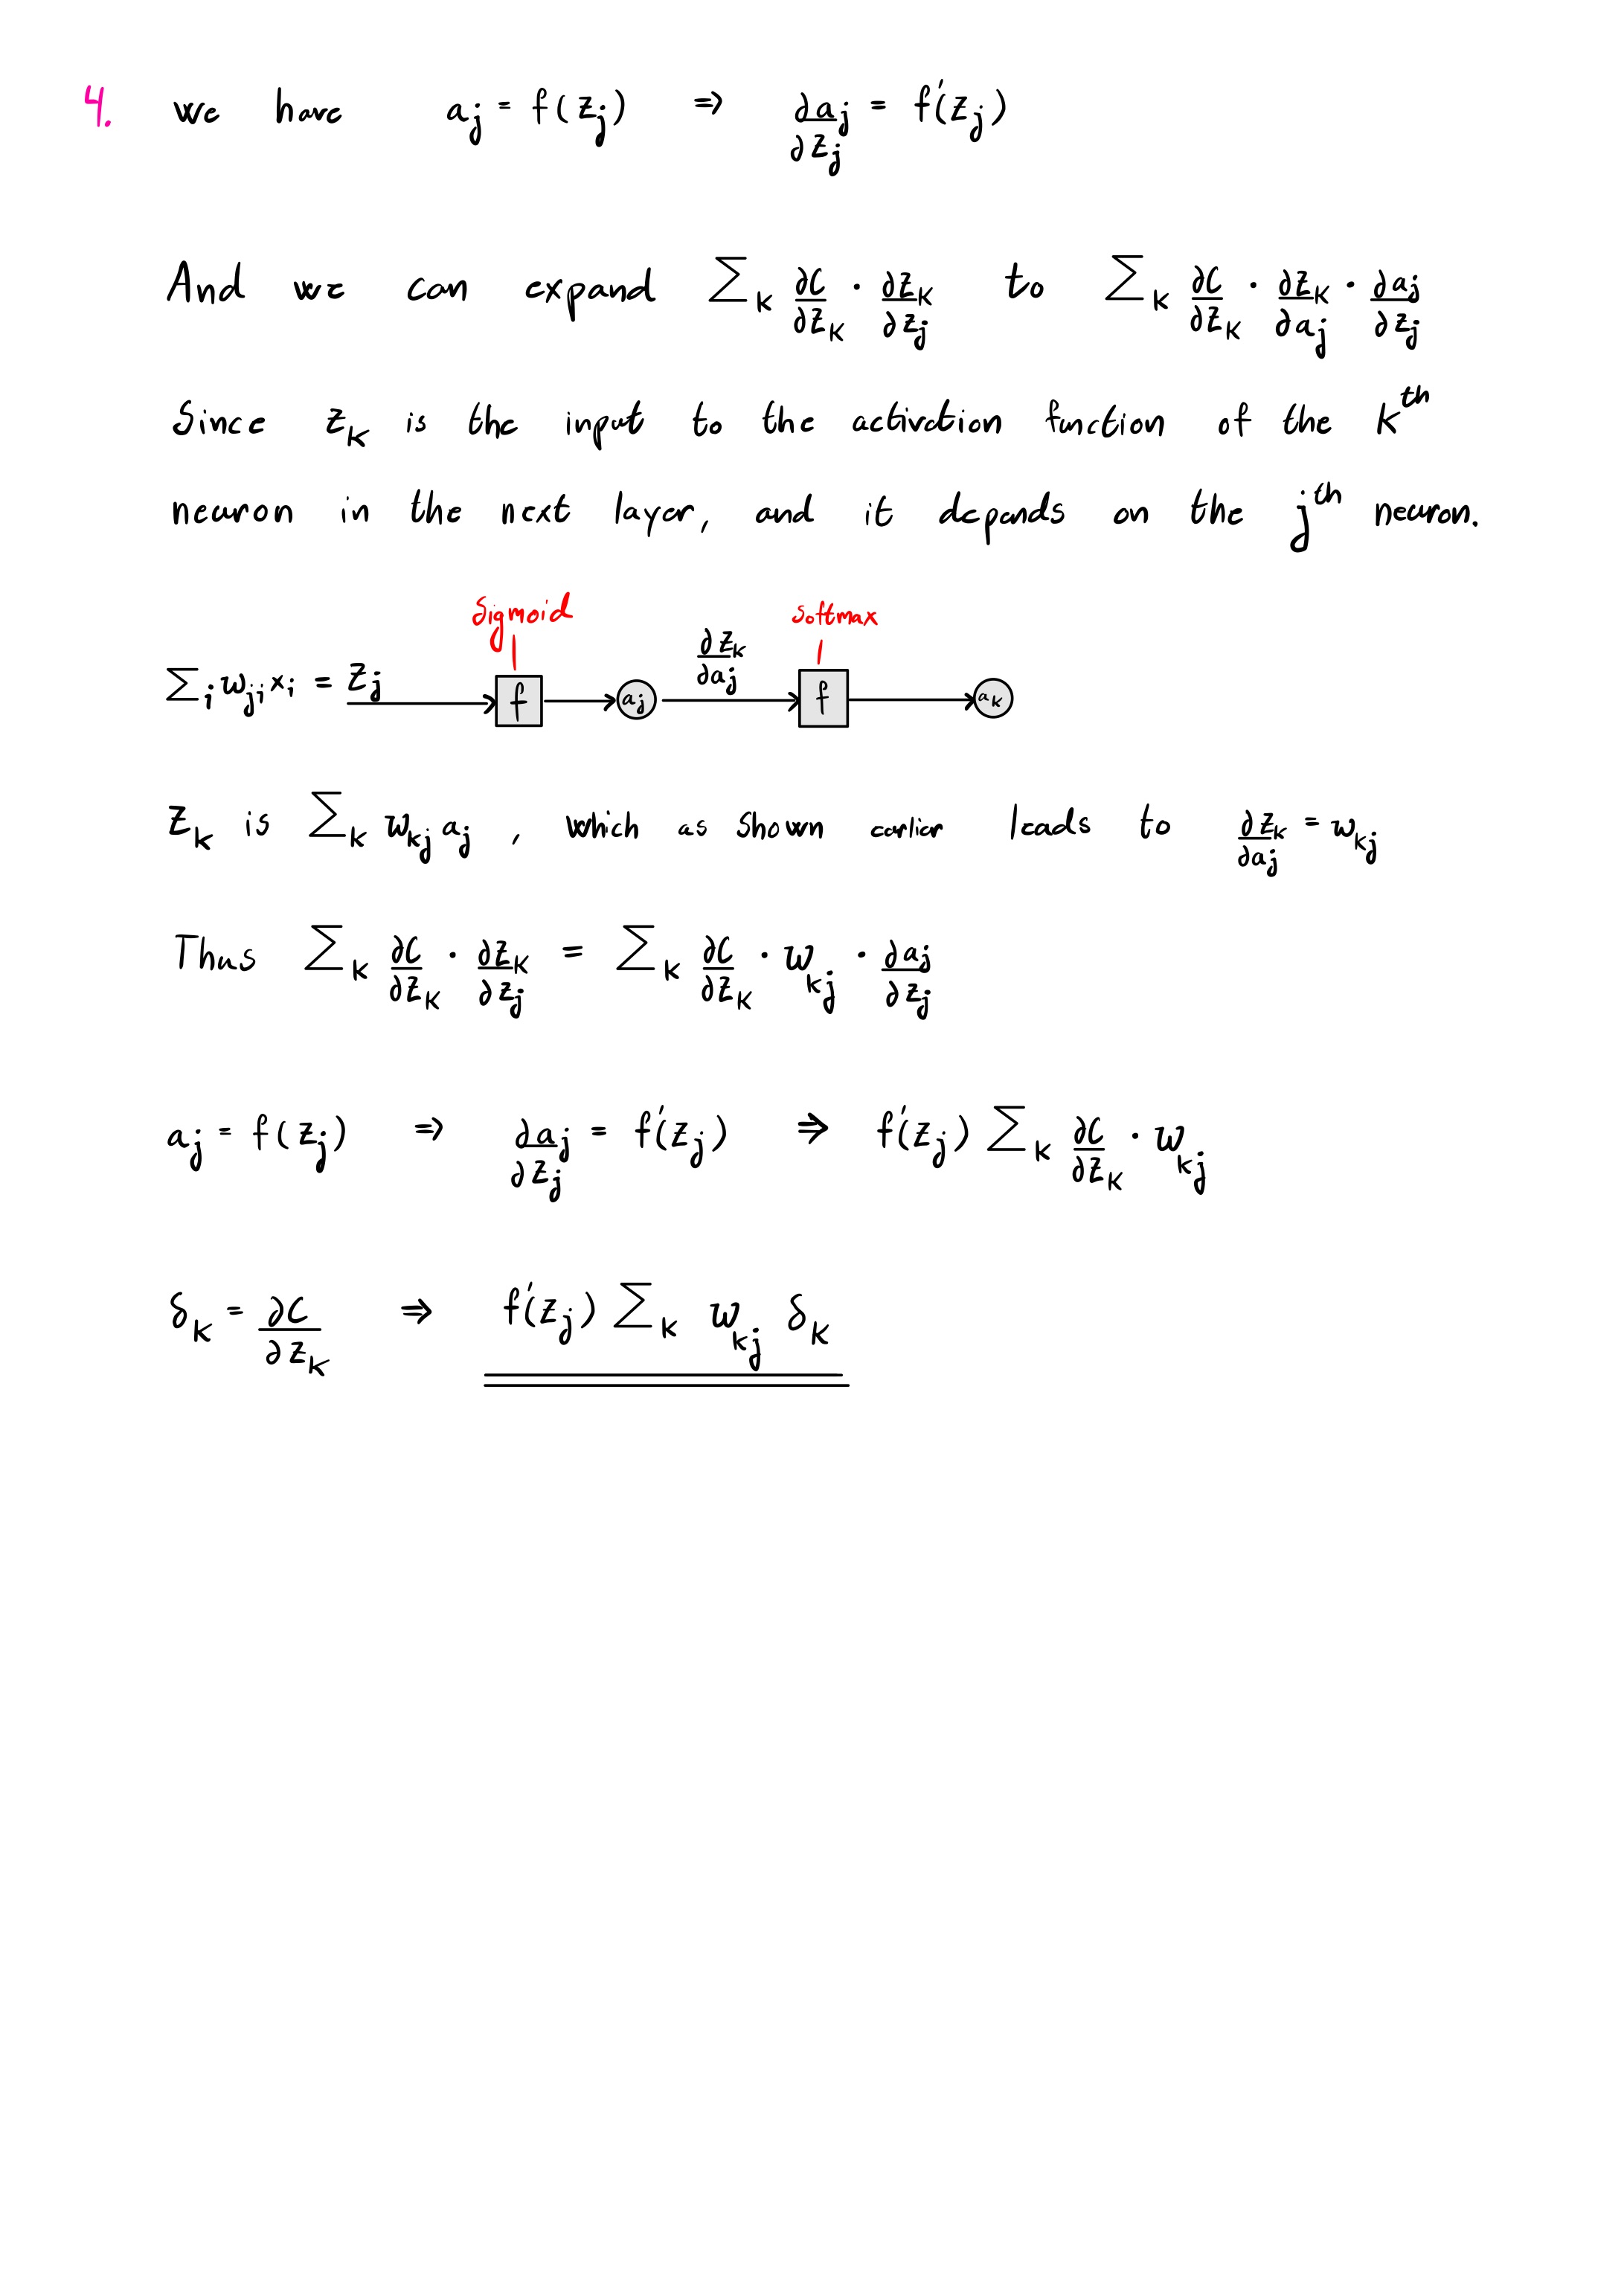 4. We have a_j = f(z_j) ⇒ ∂a_j/∂z_j = f'(z_j)
And we can expand ∑_k ∂C/∂z_k · ∂z_k/∂z_j to ∑_k ∂C/∂z_k · ∂z_k/∂a_j · ∂a_j/∂z_j
Since z_k is the input to the activation function of the k^th
neuron in the next layer, and it depends on the j^th neuron.
Sigmoid softmax
∑_i w_ji x_i = z_j f a_j ∂z_k/∂a_j f a_k
z_k is ∑_k w_kj a_j , which as shown earlier leads to ∂z_k/∂a_j = w_kj
Thus ∑_k ∂C/∂z_k · ∂z_k/∂z_j = ∑_k ∂C/∂z_k · w_kj · ∂a_j/∂z_j
a_j = f(z_j) ⇒ ∂a_j/∂z_j = f'(z_j) ⇒ f'(z_j) ∑_k ∂C/∂z_k · w_kj
δ_k = ∂C/∂z_k ⇒ f'(z_j) ∑_k w_kj δ_k